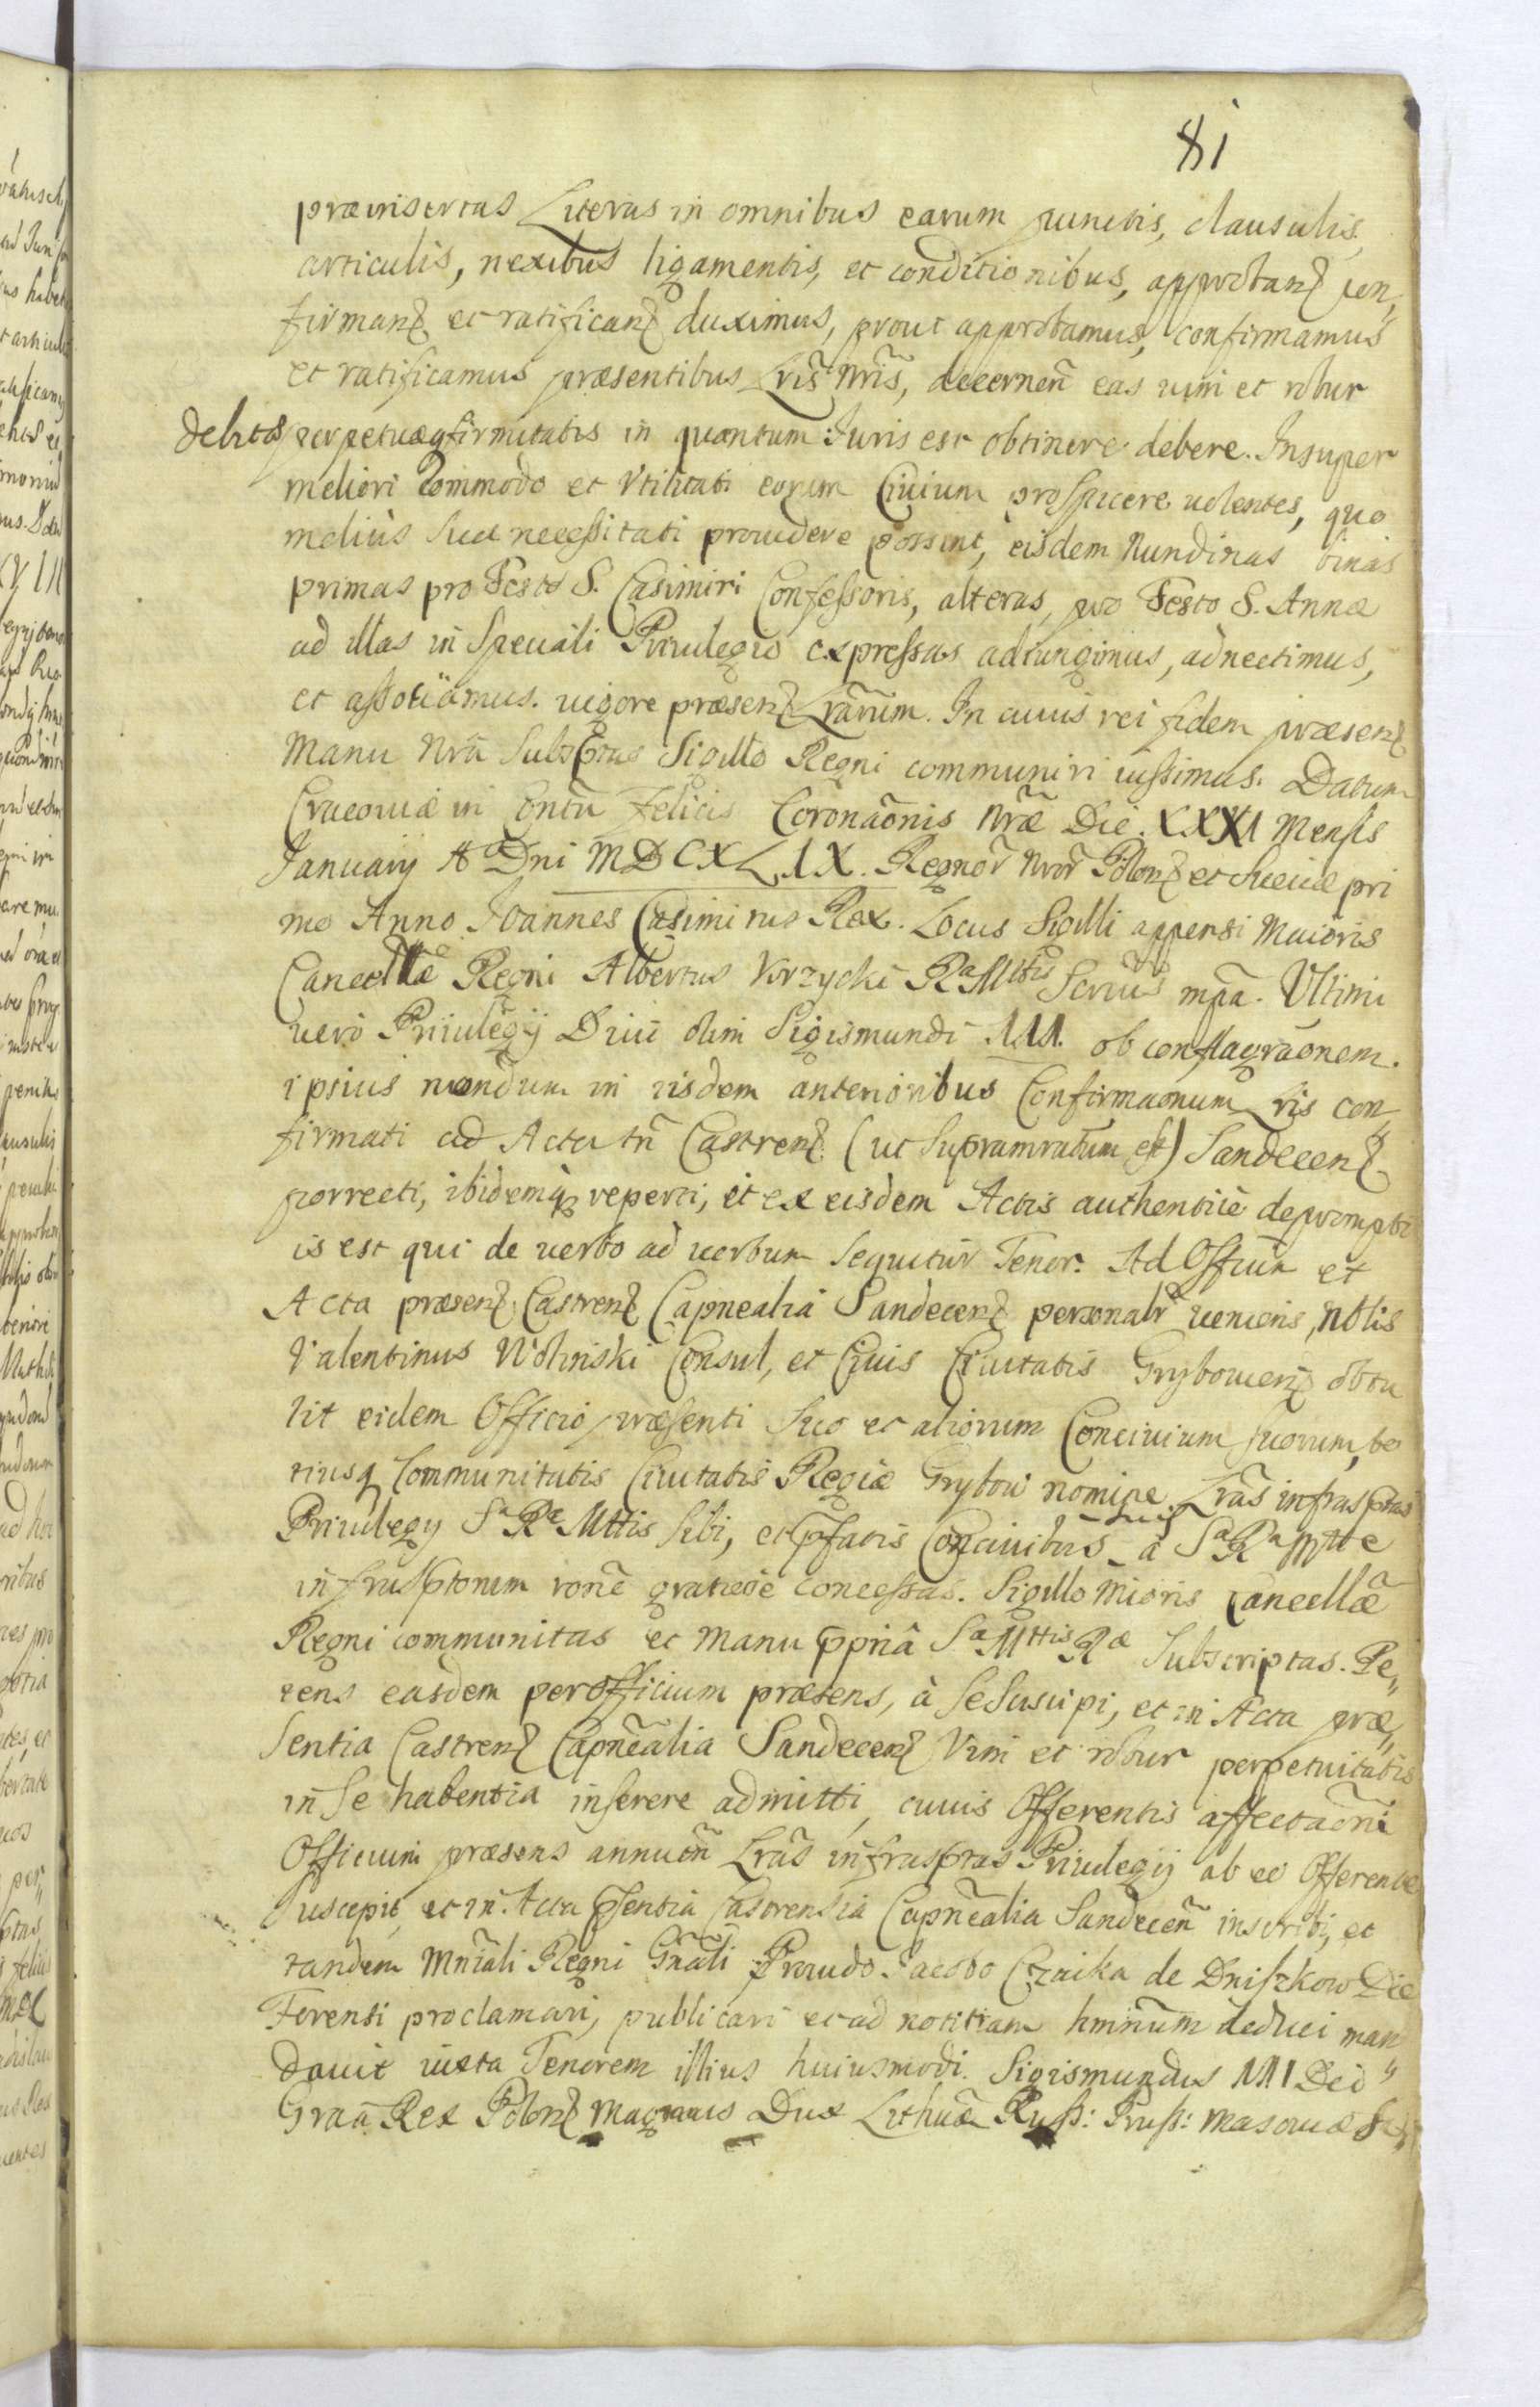 81
præinsertas Literas in omnibus earum punctis, clausulis,
articulis, nexibus ligamentis, et conditionibus, approbanꝫ con,
firmanꝫ et ratificanꝫ duximus, prout approbamus, confirmamus
et ratificamus præsentibus Lris Nris, decernen eas vim et robur
debitæ perpetuæq firmitatis in quantum Iuris est obtinere debere. Insuper
meliori Commodo et Vtilitati eorum Ciuium prospicere uolentes, quo
meliùs suæ necessitati prouidere possint, eisdem Nundinas binas
primas pro Festo S. Casimiri Confessoris, alteras, pro Festo S. Annæ
ad illas in Speciali Priuilegio expressas adiungimus, adnectimus,
et assotiamus. uigore præsenꝫ Lrarum. In cuius rei fidem præsenꝫ
Manu Nra Subscptas Sigillo Regni communiri iussimus. Datum
Cracouiæ in Conttu felicis Coronaonis Nræ Die. XXXI Mensis
Ianuarij Aº Dni MDCXLIX. Regnor Nror Polonꝫ et Sueciæ pri
mo Anno. Ioannes Casimirus Rex. Locus Sigilli appensi Maioris
Cancellæ Regni Albertus Korzycki Rᵃ Mttis Scrius mpa. Ultimi
uero Priuilegij Diui olim Sigismundi III. ob conflagraonem.
ipsius nondum in iisdem anterioribus Confirmaonum Lris con,
firmati ad Acta tn Castrenꝫ (ut Supranarratum est) Sandecenꝫ
porrecti, ibidemq reperti, et ex eisdem Actis authenticè deprompti
is est qui de uerbo ad uerbum Sequitur Tenor. Ad Offium et
Acta præsenꝫ Castrenꝫ Capnealia Sandecenꝫ personalr ueniens, Noblis
Valentinus Wolinski Consul, et Ciuis Ciuitatis Gryboviensꝫ obtu
lit eidem Officio præsenti Suo et aliorum Conciuium suorum, to
tiusq Communitatis Ciuitatis Regiæ Grybow nomine Lras infrasptas
Priuilegij Sᵃ Rᵉ Mttis Sibi, et pfatis Conciuibus suis a Sᵃ Rᵃ Mtte
infrasptorum rone gratiose concessas. Sigillo Mioris Cancellæ
Regni communitas et Manu ppria Sᵃ Mttis Rᵃ Subscriptas. Pe,,
tens easdem per Officium præsens, à Se Suscipi, et in Acta præ,,
sentia Castrenꝫ Capnealia Sandecenꝫ Vim et robur perpetuitatis
in Se habentia inserere admitti, cuius Offerentis affectaoni
Officium præsens annuen Lras infrasptas Priuilegij ab eo Offerente
Suscepit, et in Acta psentia Castrensia Capnealia Sandecen inscribi, et
tandem Mnrali Regni Gnali Prouido Iacobo Czaika de Dniszkow Die
Forensi proclamari, publicari et ad notitiam hminum deduci man
dauit iuxta Tenorem illius huiusmodi. Sigismundus III Dei
Graa Rex Polonꝫ Magnus Dux Lithuæ Russ: Pruss: Masouiæ S